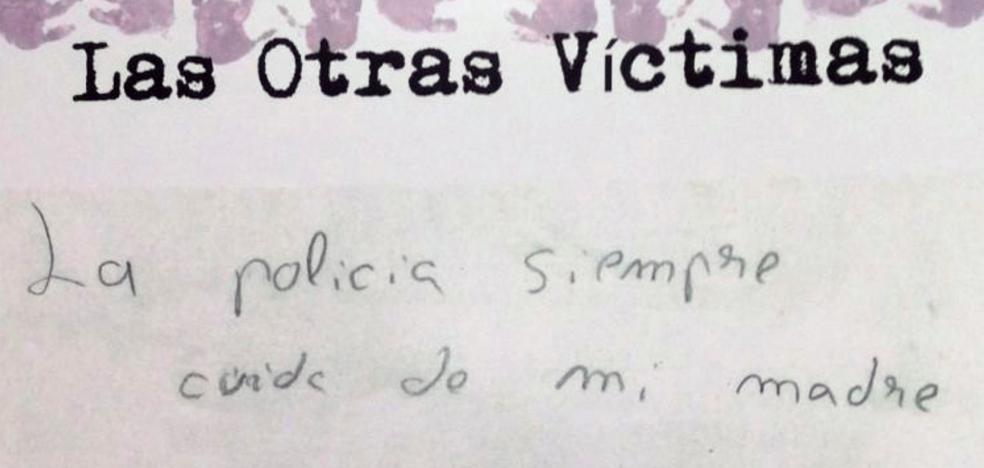 Las Otras Víctimas
La policia siempre
cuida de mi madre